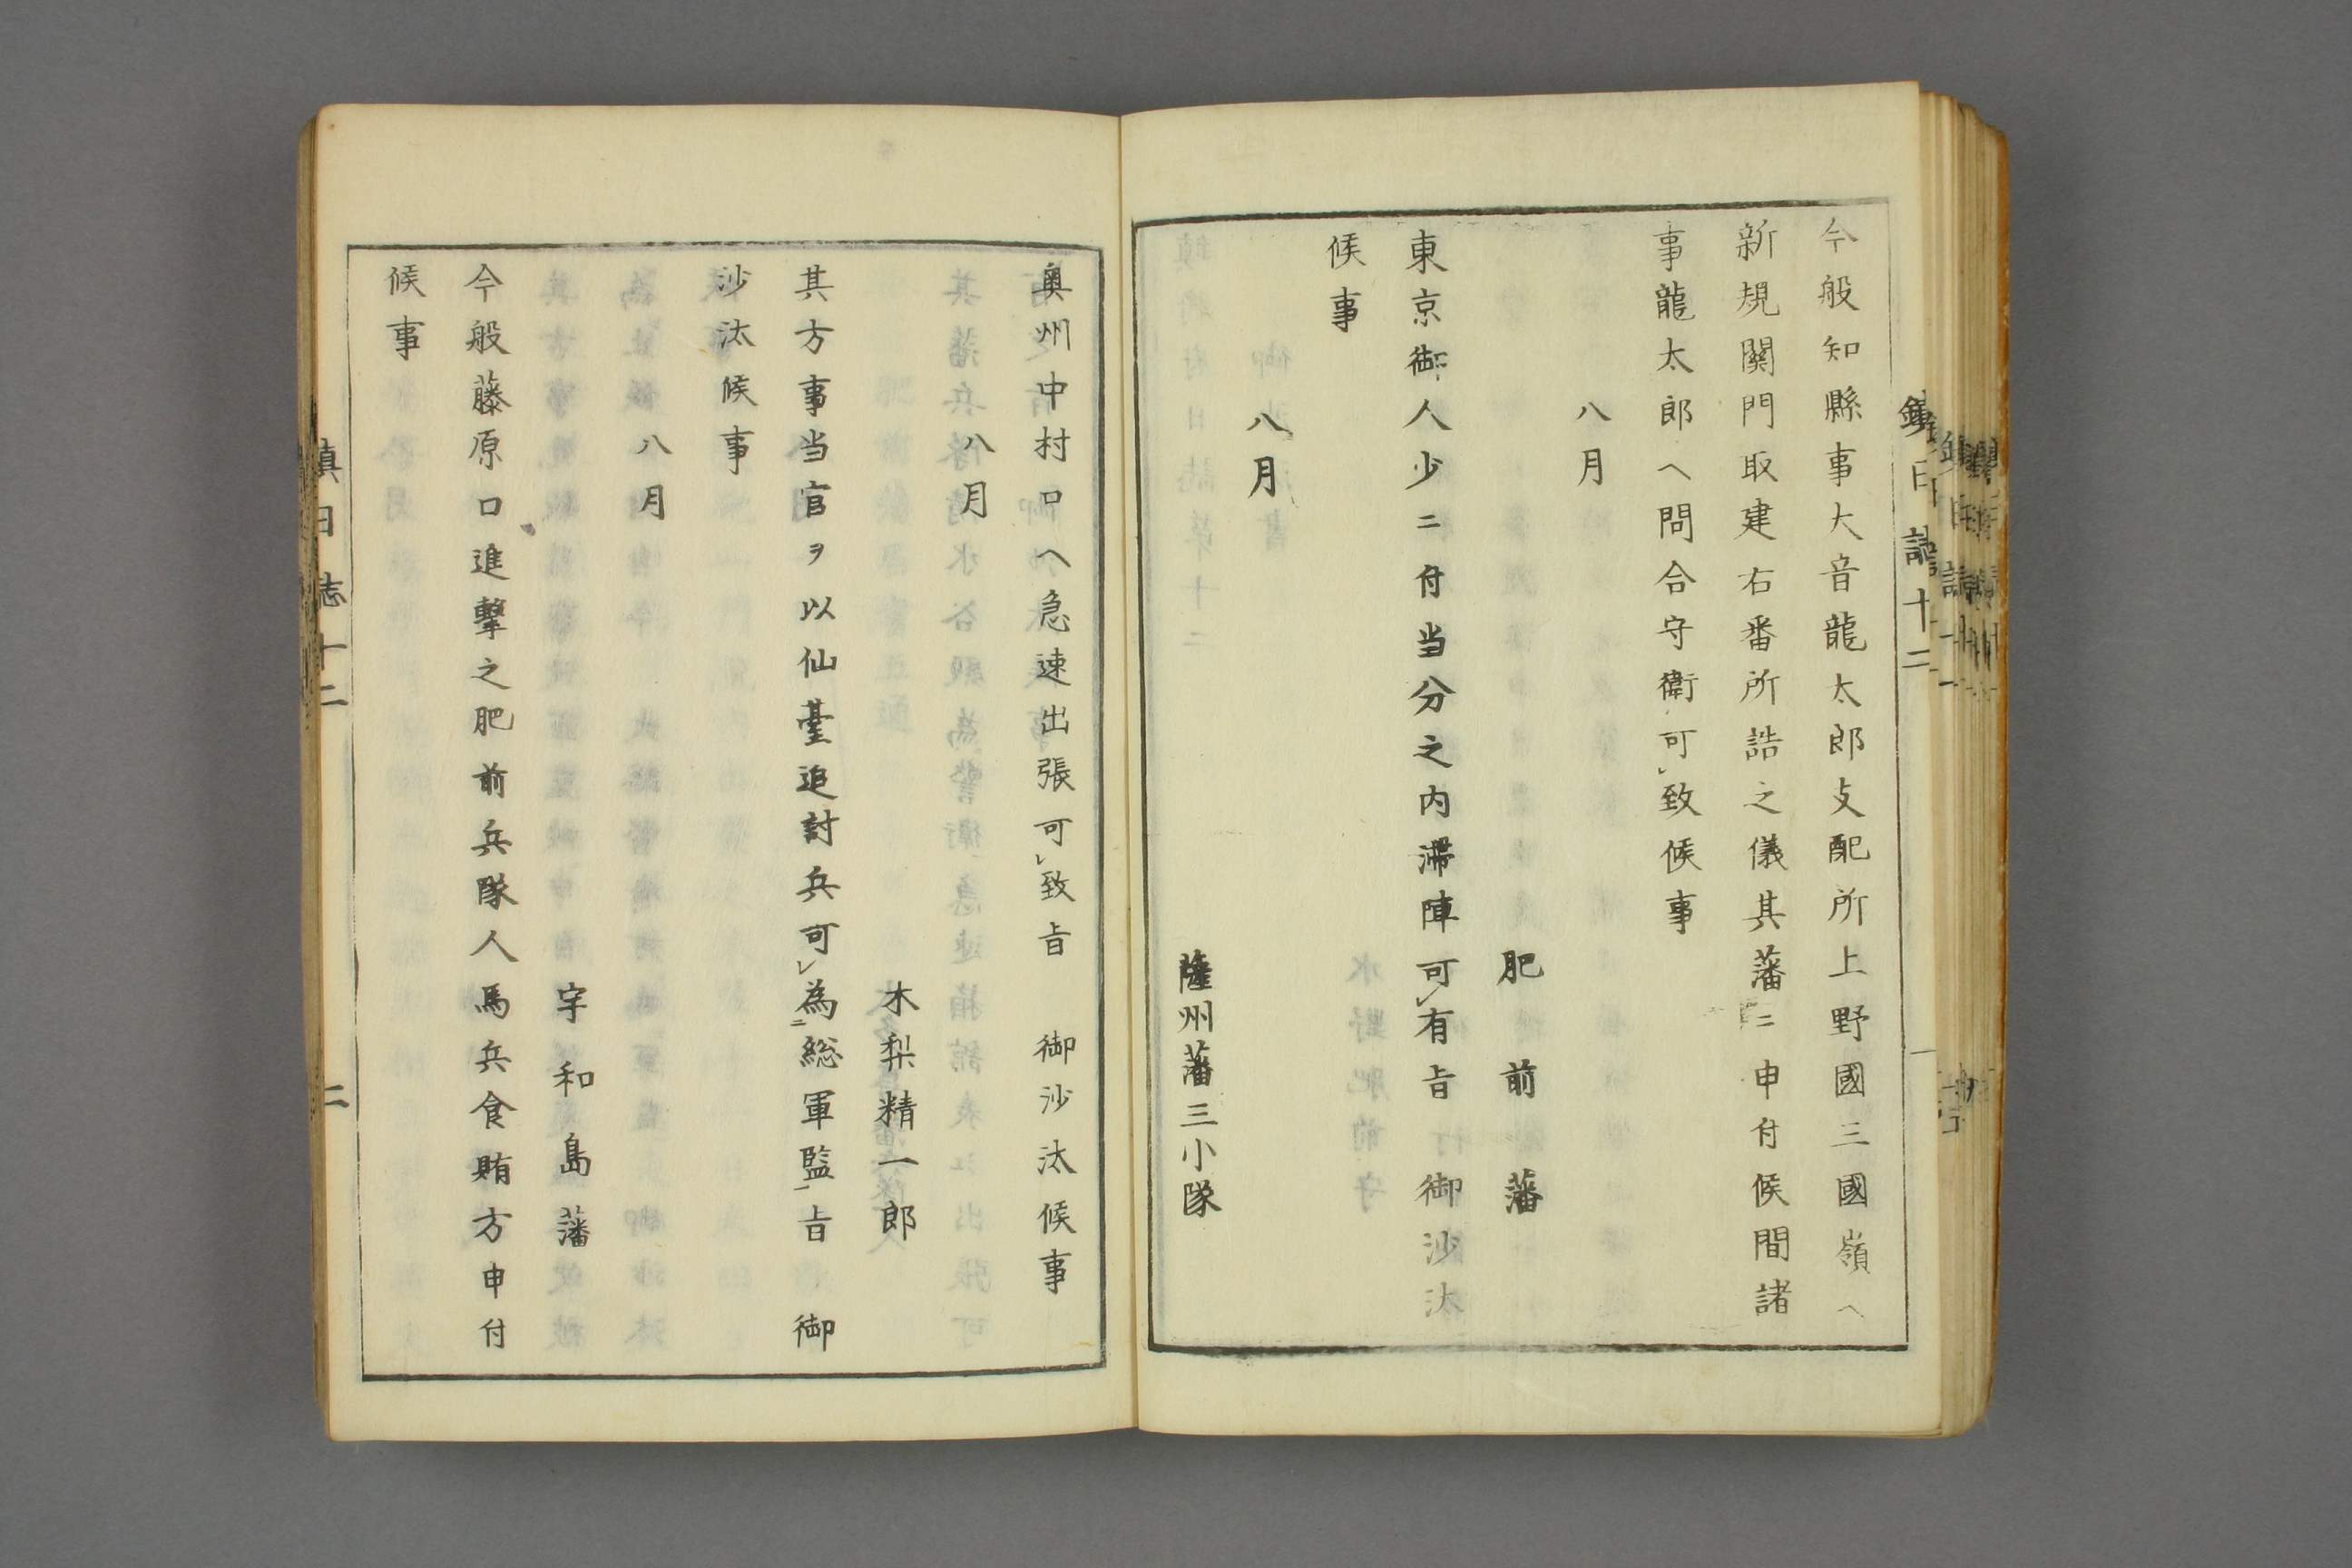 今般知縣事大音龍太郎支配所上野國三國嶺へ
新規関門取建右番所詰之儀其藩ニ申付候間諸
事龍太郎へ問合守衛可致候事
八月
肥前藩
東京御人少ニ付当分之内滞陣可有旨御沙汰
候事
八月
薩州藩三小隊
奥州中村口へ急速出張可致旨 御沙汰候事
八月
木梨精一郎
其方事当官ヲ以仙臺追討兵可為総軍監旨 御
沙汰候事
八月
宇和島藩
今般藤原口進擊之肥前兵隊人馬兵食賄方申付
候事
鎮日誌十二
一
鎮日志十二
二